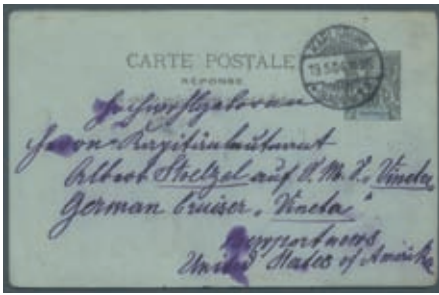 CARTE POSTALE
RÉPONSE
Hochwohlgeboren
Herrn Kapitänleutnant
Albert Stoelzel auf S. M. S. Vineta
German Cruiser „Vineta“
Newportnews
United States of Amerika